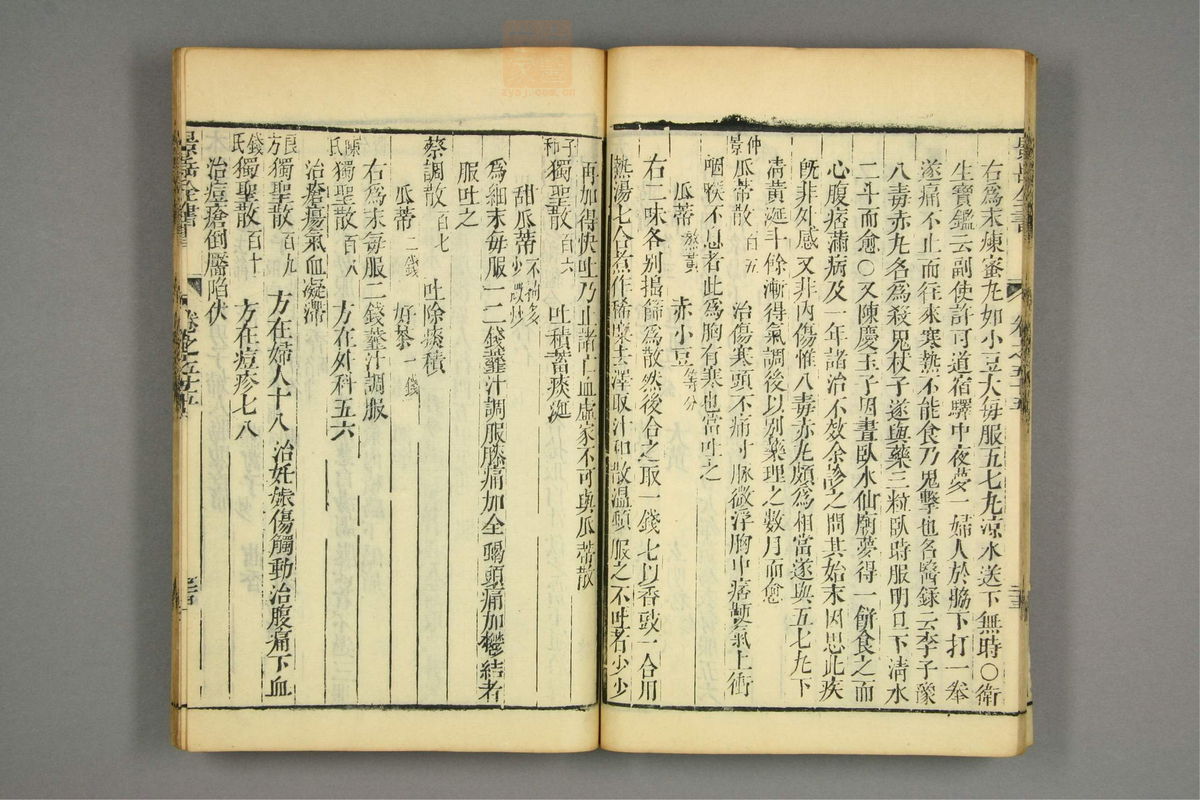 右爲末煉蜜丸如小豆大每服五七丸凉水送下無時○衛
生寶鑑云副使許可道宿驛中夜夢一婦人於脇下打一拳
遂痛不止而往來寒熱不能食乃鬼擊也名醫錄云李子豫
八毒赤丸名爲殺鬼杖子遂與藥三粒臥時服明旦下清水
二斗而愈○又陳慶玉子因晝臥水仙廟夢得一餅食之而
心腹痞滿病及一年諸治不效余診之問其始末因思此疾
旣非外感又非內傷惟八毒赤丸頗爲相當遂與五七丸下
清黃涎斗餘漸得氣調後以別藥理之數月而愈
仲景瓜蒂散百五 治傷寒頭不痛寸脉微浮胸中痞鞕氣上衝
咽喉不息者此爲胸有寒也當吐之
瓜蒂熬黃 赤小豆等分
右二味各别搗篩爲散然後合之取一錢七以香豉一合用
熱湯七合煮作稀糜去滓取汁和散溫頓服之不吐者少少
再加得快吐乃止諸亡血虛家不可與瓜蒂散
子和獨聖散百六 吐積蓄痰涎
甜瓜蒂不拘多少微炒
爲細末每服一二錢虀汁調服膝痛加全蝎頭痛加鬱結者
服吐之
蔡調散百七 吐除痰積
瓜蒂二錢 好茶一錢
右爲末每服二錢虀汁調服
陳氏獨聖散百八 方在外科五六
治瘡瘍氣血凝滯
良方獨聖散百九 方在婦人十八 治妊娠傷觸動治腹痛下血
錢氏獨聖散百十 方在痘疹七八
治痘瘡倒靨陷伏
景岳全書 卷之五十五